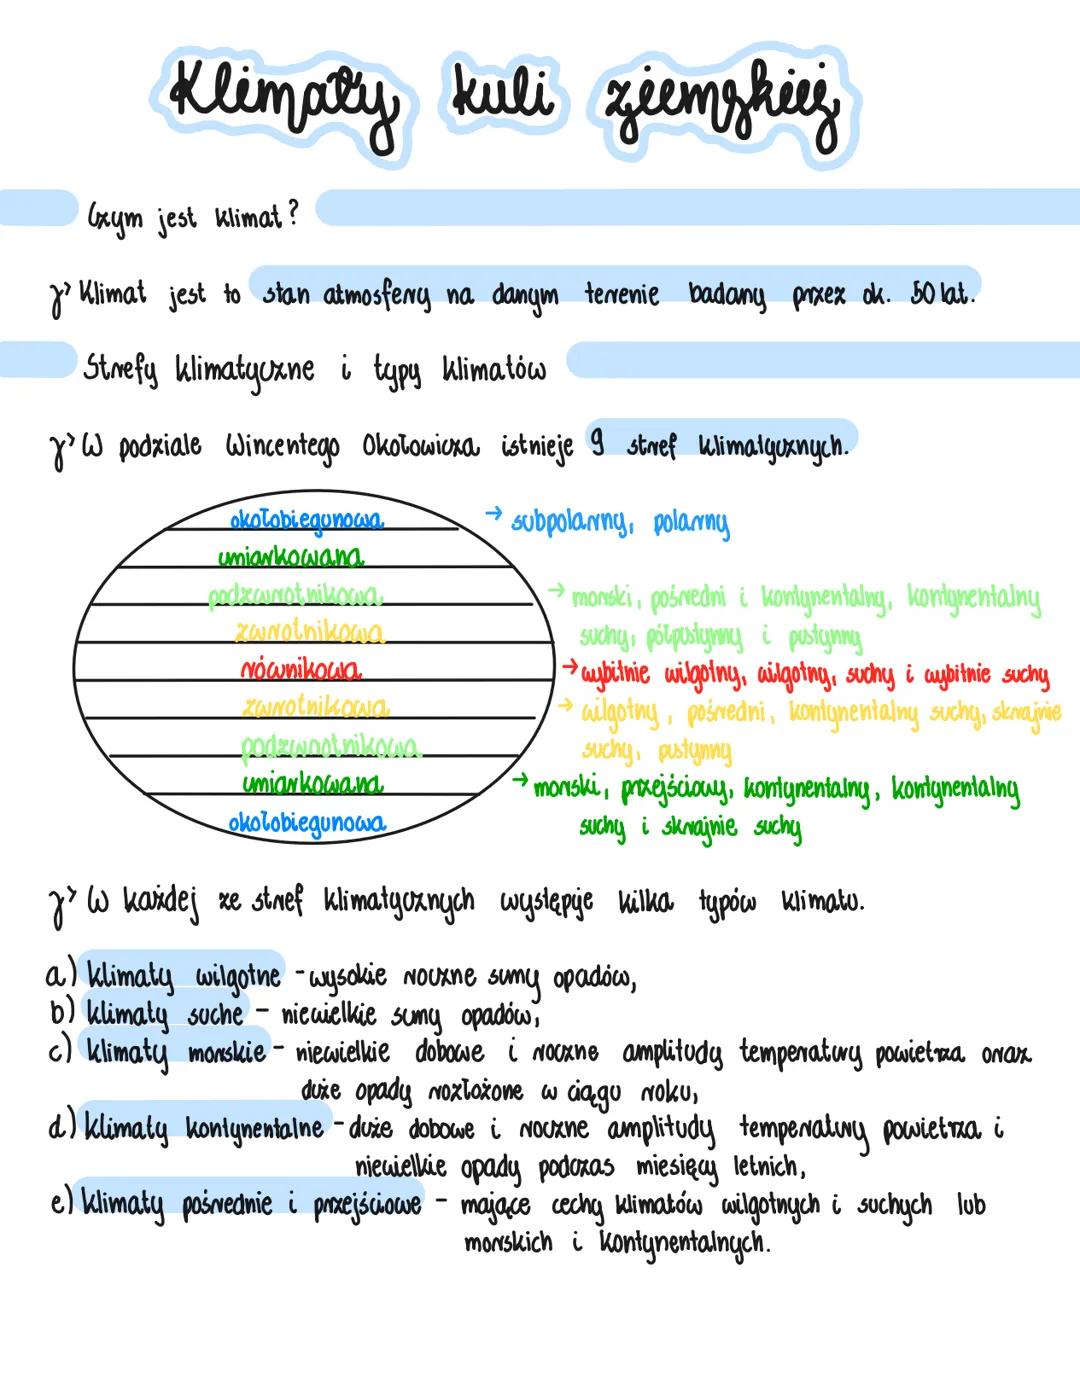 Klimaty kuli ziemskiej
Czym jest klimat?
Klimat jest to stan atmosfery na danym terenie badany przez ok. 50 lat.
Strefy klimatyczne i typy klimatów
W podziale Wincentego Okołowicza istnieje 9 stref klimatycznych.
okołobiegunowa → subpolarny, polarny
umiarkowana
podzwrotnikowa → morski, pośredni i kontynentalny, kontynentalny
suchy, półpustynny i pustynny
zwrotnikowa
równikowa → wybitnie wilgotny, wilgotny, suchy i wybitnie suchy
zwrotnikowa → wilgotny, pośredni, kontynentalny suchy, skrajnie
suchy, pustynny
podzwrotnikowa
umiarkowana → morski, przejściowy, kontynentalny, kontynentalny
suchy i skrajnie suchy
okołobiegunowa
W każdej ze stref klimatycznych występuje kilka typów klimatu.
a) klimaty wilgotne - wysokie roczne sumy opadów,
b) klimaty suche - niewielkie sumy opadów,
c) klimaty morskie - niewielkie dobowe i roczne amplitudy temperatury powietrza oraz
duże opady rozłożone w ciągu roku,
d) klimaty kontynentalne - duże dobowe i roczne amplitudy temperatury powietrza i
niewielkie opady podczas miesięcy letnich,
e) klimaty pośrednie i przejściowe - mające cechy klimatów wilgotnych i suchych lub
morskich i kontynentalnych.